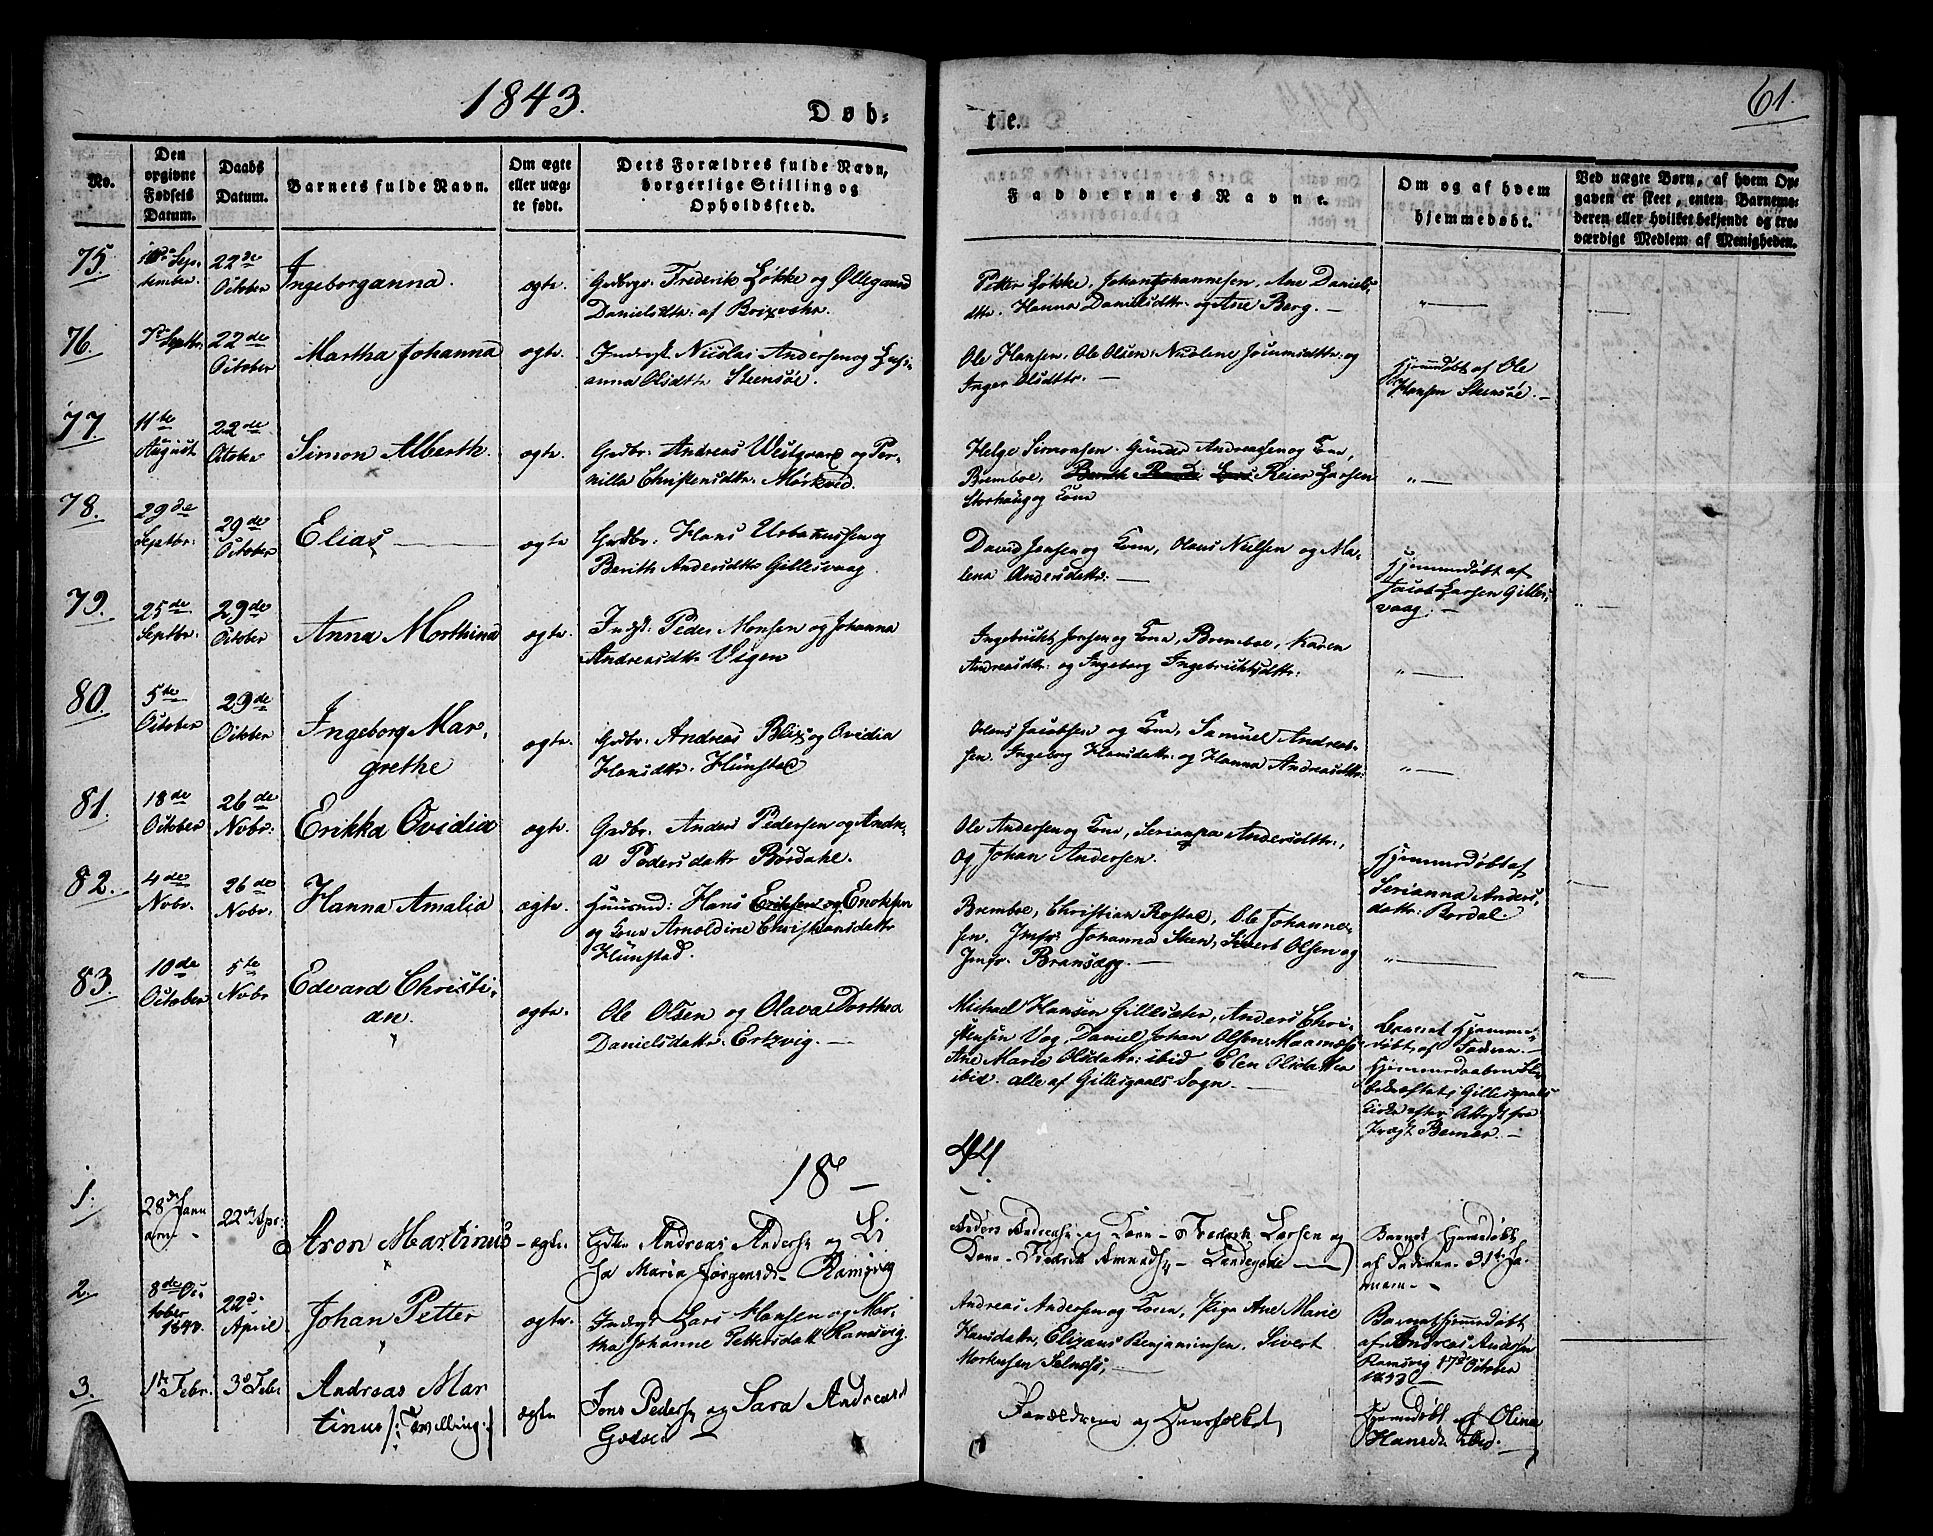 1843.
Døb-
te.
61.
No.
Den
opgivne
Fødsels
Datum.
Daabs
Datum.
Barnets fulde Navn.
Om ægte
eller uæg-
te født.
Dets Forældres fulde Navn,
borgerlige Stilling og
Opholdssted.
Faddernes Navne.
Om og af hvem
hjemmedøbt.
Ved uægte Børn, af hvem Op-
gaven er skeet, enten Barnemo-
deren eller hvilket bekjendt og tro-
værdigt Medlem af Menigheden.
75.
Sep-
tember
22de
October
Ingeborganna.
ægte.
Frederik Løkke og Øllegaard
Danielsdtr: af
Petter Løkke, Johan Johannesen, Ane Daniels-
dtr. Hanna Danielsdtr. og Ane Berg. —
" —
76.
7de Septbr.
22de
October
Martha Johanna
ægte.
Nicolai Andersen og
anna Olsdtr Steensøe.
Ole Hansen, Ole Olsen, Nicoline og
Inger Olsdtr. —
Hjemmdøbt af Ole
Hansen Steensøe. —
77.
11te
August
22de
October
Simon Alberth.
ægte.
Gadbr. Andreas Westgaard og Per-
nille Christensdtr. Mørkved.
Helge Simonsen. Gunder Andreasen og Kone,
Bremboe, Reier Larsen
Storhaug og Kone
" —
78.
29de
Septbr:
29de
October
Elias —
ægte
Gadbr. Hans Urbanussen og
Berith Andersdtr Gillesvaag.
David Jensen og Kone, Olaus Nielsen og Ma-
lena Andersdtr: —
Hjemmedøbt af
Jacob Larsen Gilles-
vaag. —
79.
25de
Septbr.
29de
October
Anna Morthina
ægte.
Indst: Peder Monsen og Johanna
Andreasdtr Vigen
Ingebrikt Jensen og Kone, Bremboe, Karen
Andreasdtr: og Ingeborg Ingebrictsdtr:
" —
80.
5te
October
29de
October
Ingeborg Mar-
grethe
ægte.
Gadbr. Andreas Blix og Ovidia
Hansdtr. Hunstad
Olaus Jacobsen og Kone, Samuel Andreas-
sen. Ingeborg Hansdatr: og Hanna Andreasdtr:
" —
81.
18de
October
26de
Nobr:
Erikka Ovidia
ægte.
Gadbr. Anders Pedersen og Andre-
a Pedersdatr Børdahl.
Ole Andersen og Kone, Serianna Andersdtr.,
og Johan Andersen.
Hjemmedøbt af
Serianna Anders-
datr: Bordal
82.
4de
Nobr.
26de
Nobr.
Hanna Amalia
ægte.
Huusmd: Hans Eriksen og Enoksen
og Kone Arnoldine Christiansdatr
Hunstad.
Bremboe, Christian Røstad, Ole Johanne-
sen. Jmfr: Johanna Steen, Sivert Olsen og
Jmfr. Bransægg. —
" —
83.
10de
October
5te
Nobr
Edvard Christi-
an.
ægte.
Ole Olsen og Olava Dorthea
Danielsdatr. Ertzvig. —
Michael Hansen Gilleseter, Anders Chri-
stensen Vog, Daniel Johan Olsen Maarnæs
Ane Marie Olsdatr: ibid Elen Olsdatter
ibid. alle af Gillesgaals Sogn. —
Barnet Hjemme-
døbt af Faderen. —
Hjemmedaaben
bekræftet i Gillesgaals
Kirke efter Attest fra
Berner. —
18 —
44
1.
28de Janu
22de Apr:
Aron Martinus
ægte.
Andreas Anders. og Li
sa Maria Jørgensd. Ramsvig
og Kone — Frederik Larsen og
Kone — Landegode —
Barnet hjemdøbt
af Faderen 31te Ja-
nuar —
2.
8de Oc-
tober
1843.
22d.
April
Johan Petter
ægte.
Indst Lars Hansen og Mar-
tha Johanne Pettersdatr Ramsvig.
Andreas Andersen og Kone, Pige Ane Marie
Hansdatr, Elizæus Benjaminsen. Sivert
Mortensen
Barnet hjemmdøbt
af Andreas Andersen
Ramsvig 17de October
1843 —
3.
1te Febr.
3de Febr
Andreas Mar
tinus /: Tvilling :/
ægte
Jens Peders. og Sara Andreasd
Godøen —
Forældrene og Huusfolket
Hjemdøbt af Olina
Hansdtr ibid. —